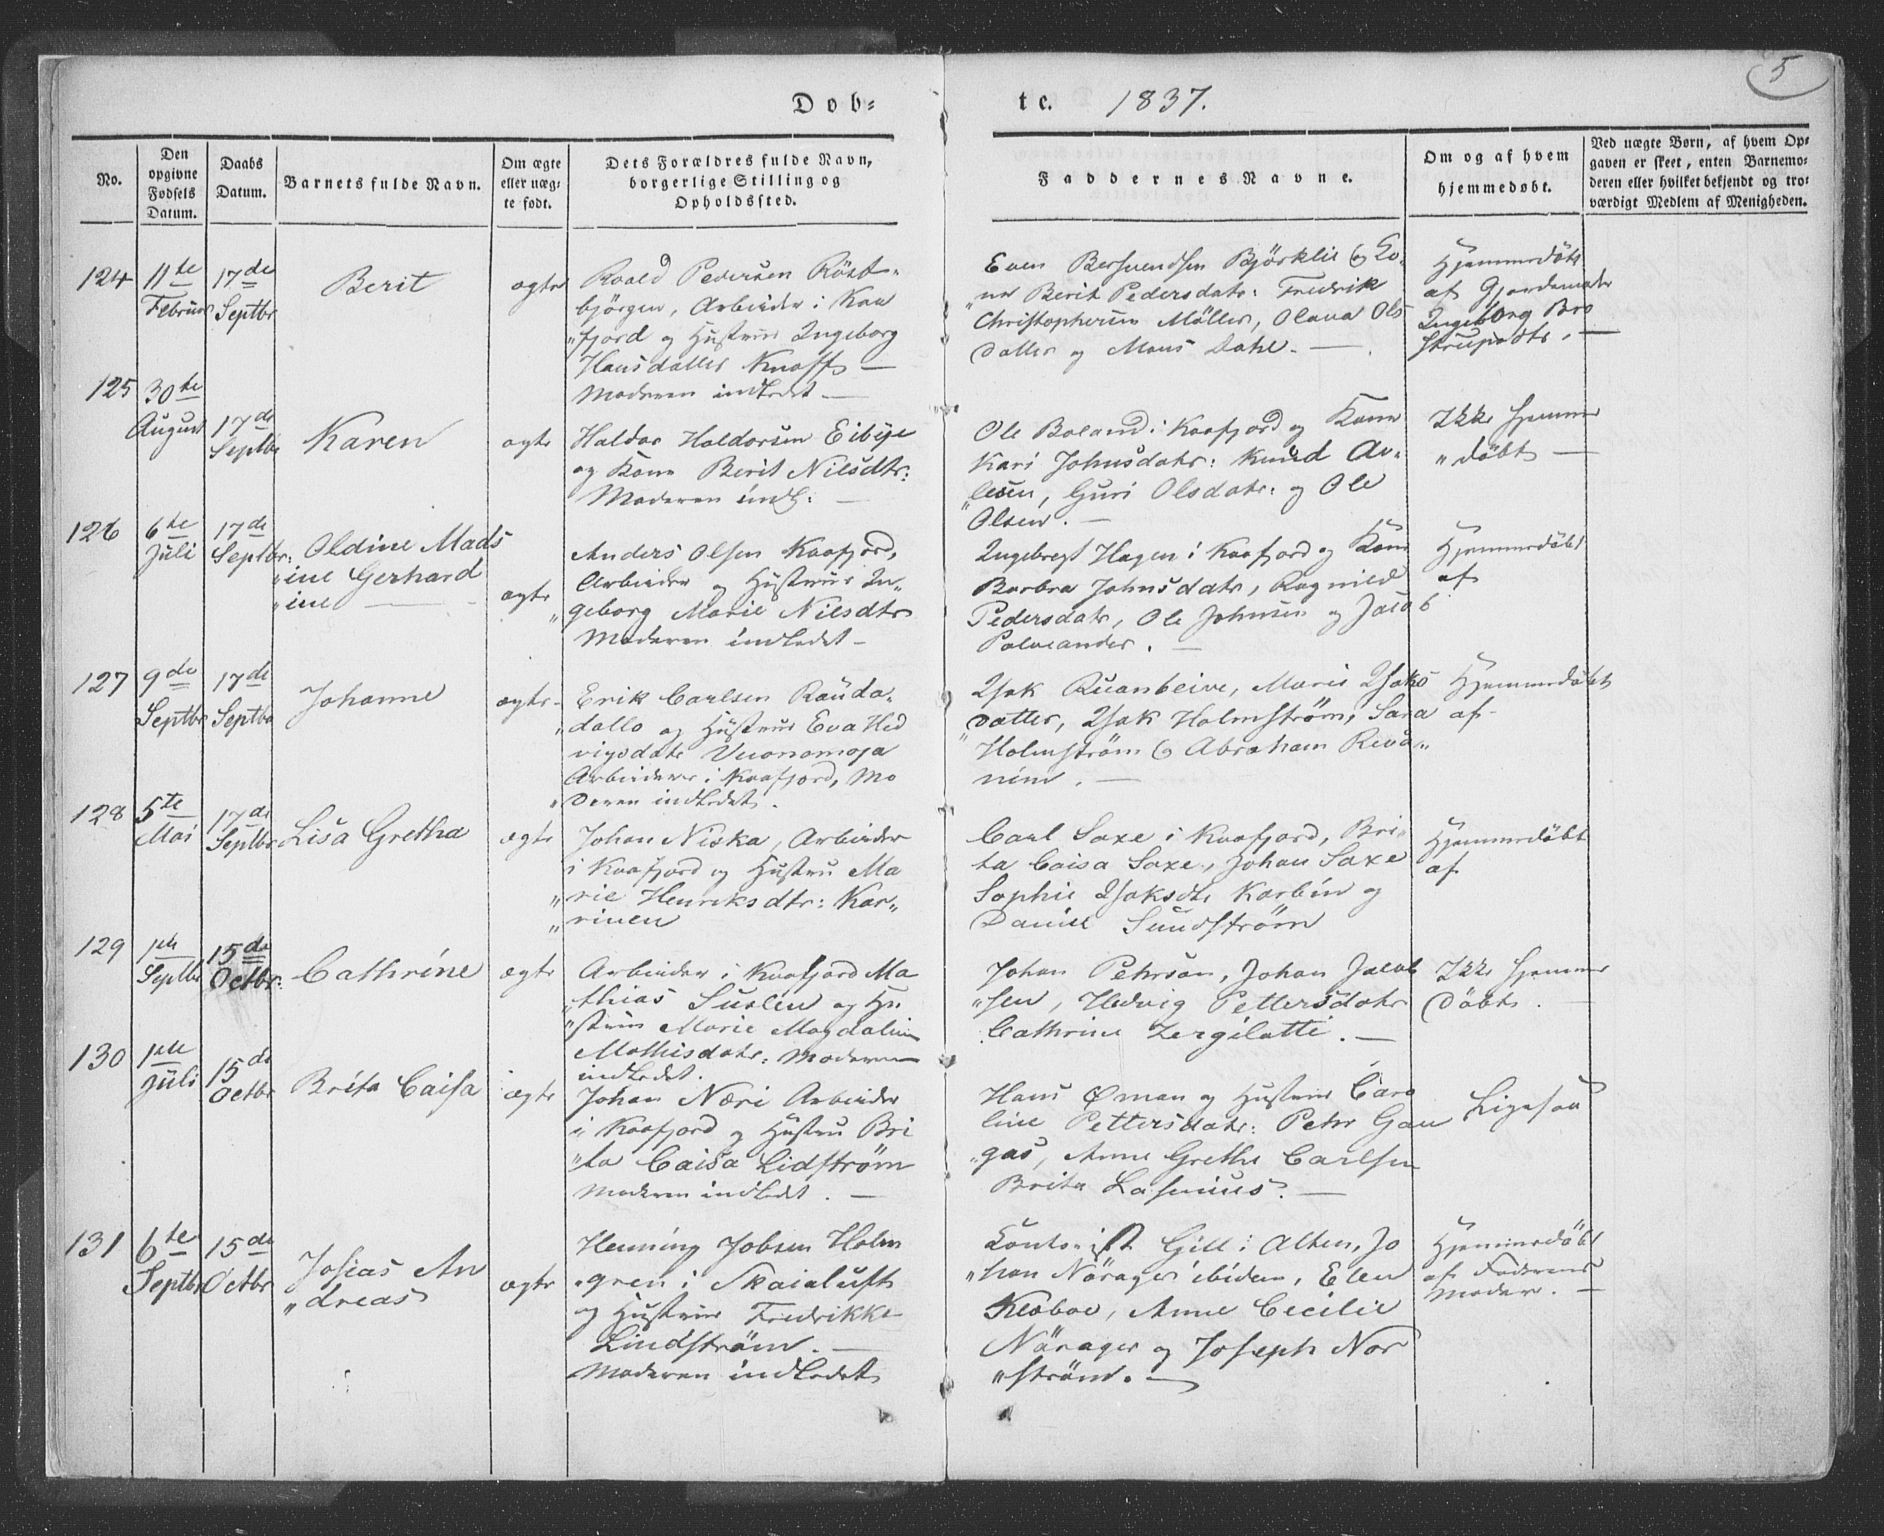 5
Dob- te. 1837.
No.
Den opgivne Fødsels Datum.
Daabs Datum.
Barnets fulde Navn.
Om ægte eller uæg- te født.
Dets Forældres fulde Navn, borgerlige Stilling og Opholdssted.
Faddernes Navne.
Om og af hvem hjemmedøbt.
Ved uægte Børn, af hvem Op- gaven er skeet, enten Barnemo- deren eller hvilket bekjendt og tro- værdigt Medlem af Menigheden.
124
11te Februar
17de Septbr
Berit
ægte
Roald Pedersen Röst-
björgen, Arbeider i Kaa
"fjord og Hustrue Ingeborg
Hansdatter Knoff —
Moderen indledet —
Even Bersvendsen Björklie og Ko-
"ne Berit Pedersdatr: Fredrik
Christophersen Möller, Olava Ols
Datter og Mons Dahl. —
Hjemmedöbt
af Gjordemoder
Ingeborg Bro
strupdtr. —
125
30te August
17de Septbr
Karen
ægte
Haldor Haldorsen Eibye
og Kone Berit Nilsdtr:
Moderen indl: —
Ole Boland i Kaafjord og Kone
Kari Johnsdatr: Knud Ar-
"lesen, Guri Olsdatr: og Ole
Olsen. —
Ikke hjemme
"döbt —
126
6te Juli
17de Septbr:
Oldine Mads
"ine Gerhard
"ine —
ægte
Anders Olsen Kaafjord,
Arbeider og Hustrue In-
"geborg Marie Nilsdtr
Moderen indledet —
Ingebregt Hagen i Kaafjord og Kone
Barbra Johnsdatr, Ragnild
Pedersdatr, Ole Johnsen og Jacob
Polveander. —
Hjemmedöbt
af
127
9de Septbr
17de Septbr
Johanne
ægte
Erik Carlsen Rauda-
"dallo og Hustrue Eva Hed
vigsdatr Vuonomoja
Arbeidere i Kaafjord, Mo
"deren indledet.
Isak Ruanbeive, Marie Isaks
"Datter, Isak Holmström, Sara
Holmström og Abraham Riva-
nim. —
Hjemmedöbt
af
128
5te Mai
17de Septbr
Lisa Gretha
ægte
Johan Niska, Arbeider
i Kaafjord og Hustru Ma
"rie Henriksdtr: Kar-
"rinen
Carl Saxe i Kaafjord, Bri-
ta Caisa Saxe, Johan Saxe
Sophie Isaksdtr Karbin og
Daniel Sundström
Hjemmedöbt
af
129
1ste Septbr
15de Octbr:
Cathrine
ægte
Arbeider i Kaafjord Ma
"thias Suslin og Hu
"strue Marie Magdalene
Mathisdatr: Moderen
indledet.
Johan Petersan, Johan Jacob
"sen, Hedvig Pettersdatr
Cathrine Zergilatti. —
Ikke hjemme
döbt. —
130
1ste Juli
15de Octbr
Brita Caisa
ægte
Johan Næri Arbeider
i Kaafjord og Hustru Bri
"ta Caisa Lidström
Moderen indledet. —
Hans Öman og Hustrue Caro
line Pettersdatr: Petr Gau
"gas, Anne Grethe Carlsen
Brita Lasenius. —
Ligesaa
131
6te Septbr
15de Octbr
Josias An
"dreas
ægte
Henning Jobsen Holm
"gren i Skaialuft
og Hustrue Fredrikke
Lindström. —
Moderen indledet
Contorist Gill i Alten, Jo
"han Nörager ibidem, Elen
Klæboe, Anne Cecilie
Nörager og Joseph Nor
"ström. —
Hjemmedöbt
af Faderens
Moder. —